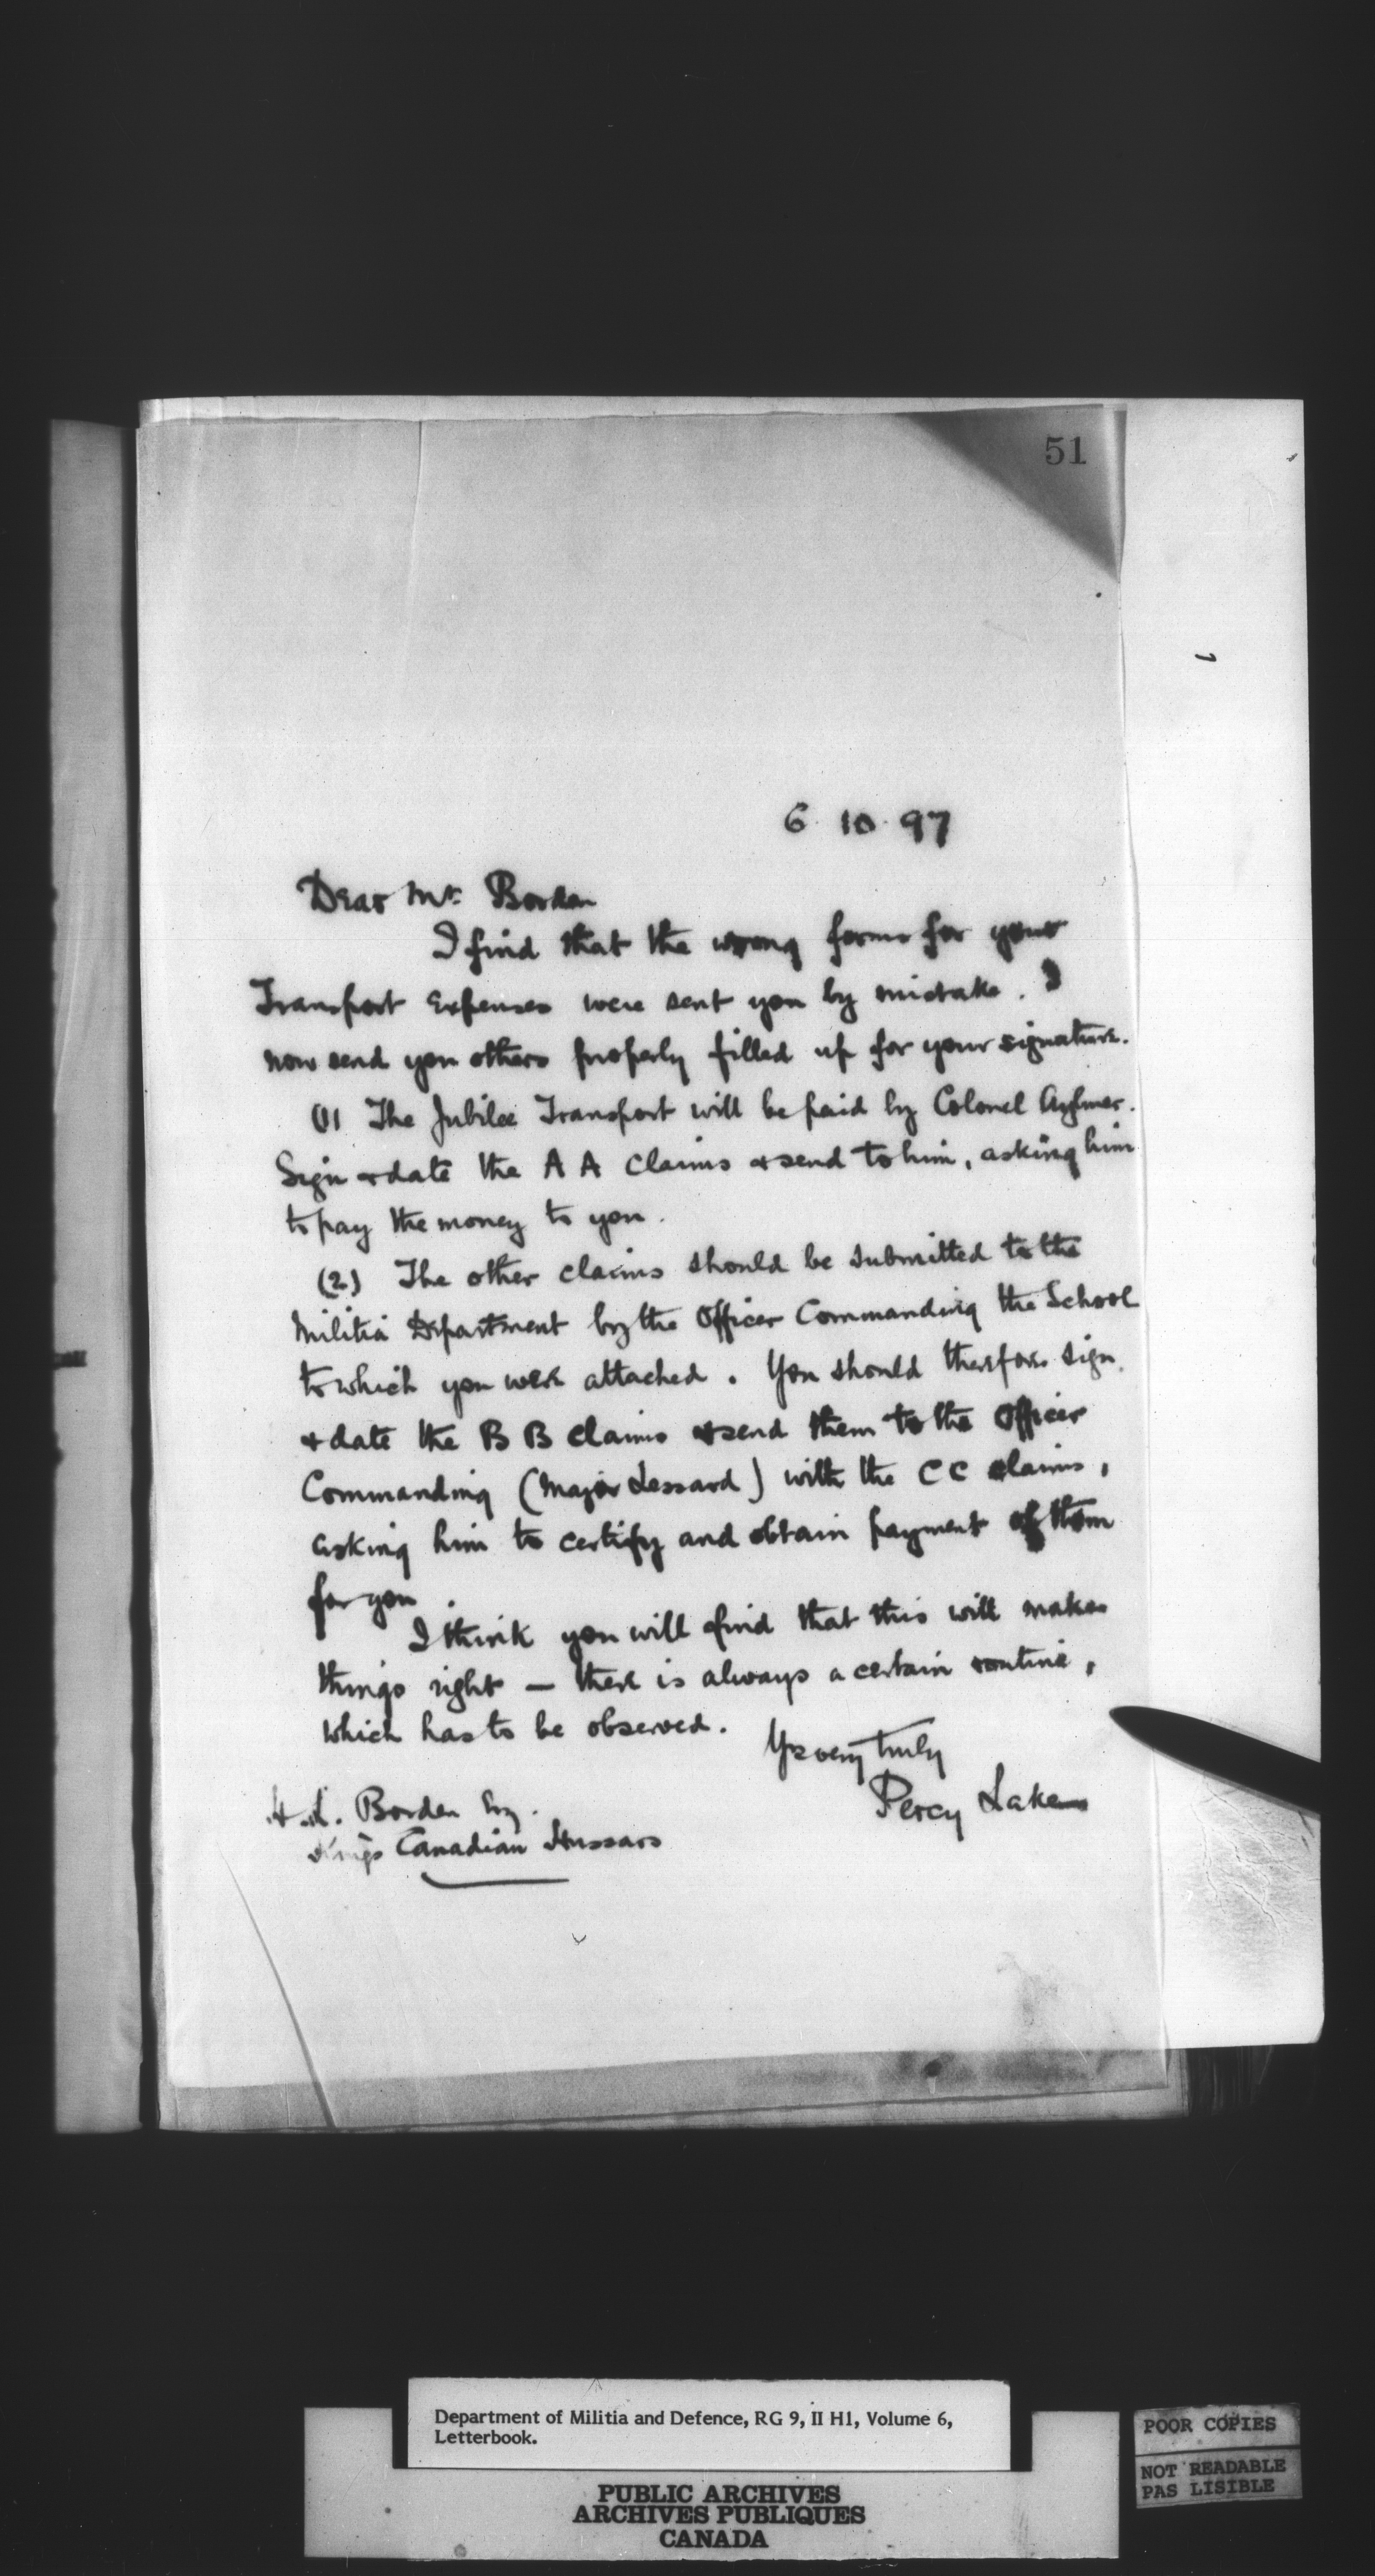 51
6. 10. 97
Dear Mr. Borden
I find that the wrong forms for your
Transport Expenses were sent you by mistake. I
now send you others properly filled up for your signature.
(1) The Jubilee Transport will be paid by Colonel Aylmer.
Sign & date the A A claims & send to him, asking him
to pay the money to you.
(2) The other claims should be submitted to the
Militia Department by the Officer Commanding the School
to which you were attached. You should therefore sign
& date the B B claims & send them to the Officer
Commanding (Major Lessard) with the C C claims,
asking him to certify and obtain payment of them
for you.
I think you will find that this will make
things right — there is always a certain routine,
which has to be observed.
Yrs very truly
Percy Lake
H. L. Borden Esq.
Kings Canadian Hussars
Department of Militia and Defence, RG 9, II H1, Volume 6,
Letterbook.
PUBLIC ARCHIVES
ARCHIVES PUBLIQUES
CANADA
POOR COPIES
NOT READABLE
PAS LISIBLE